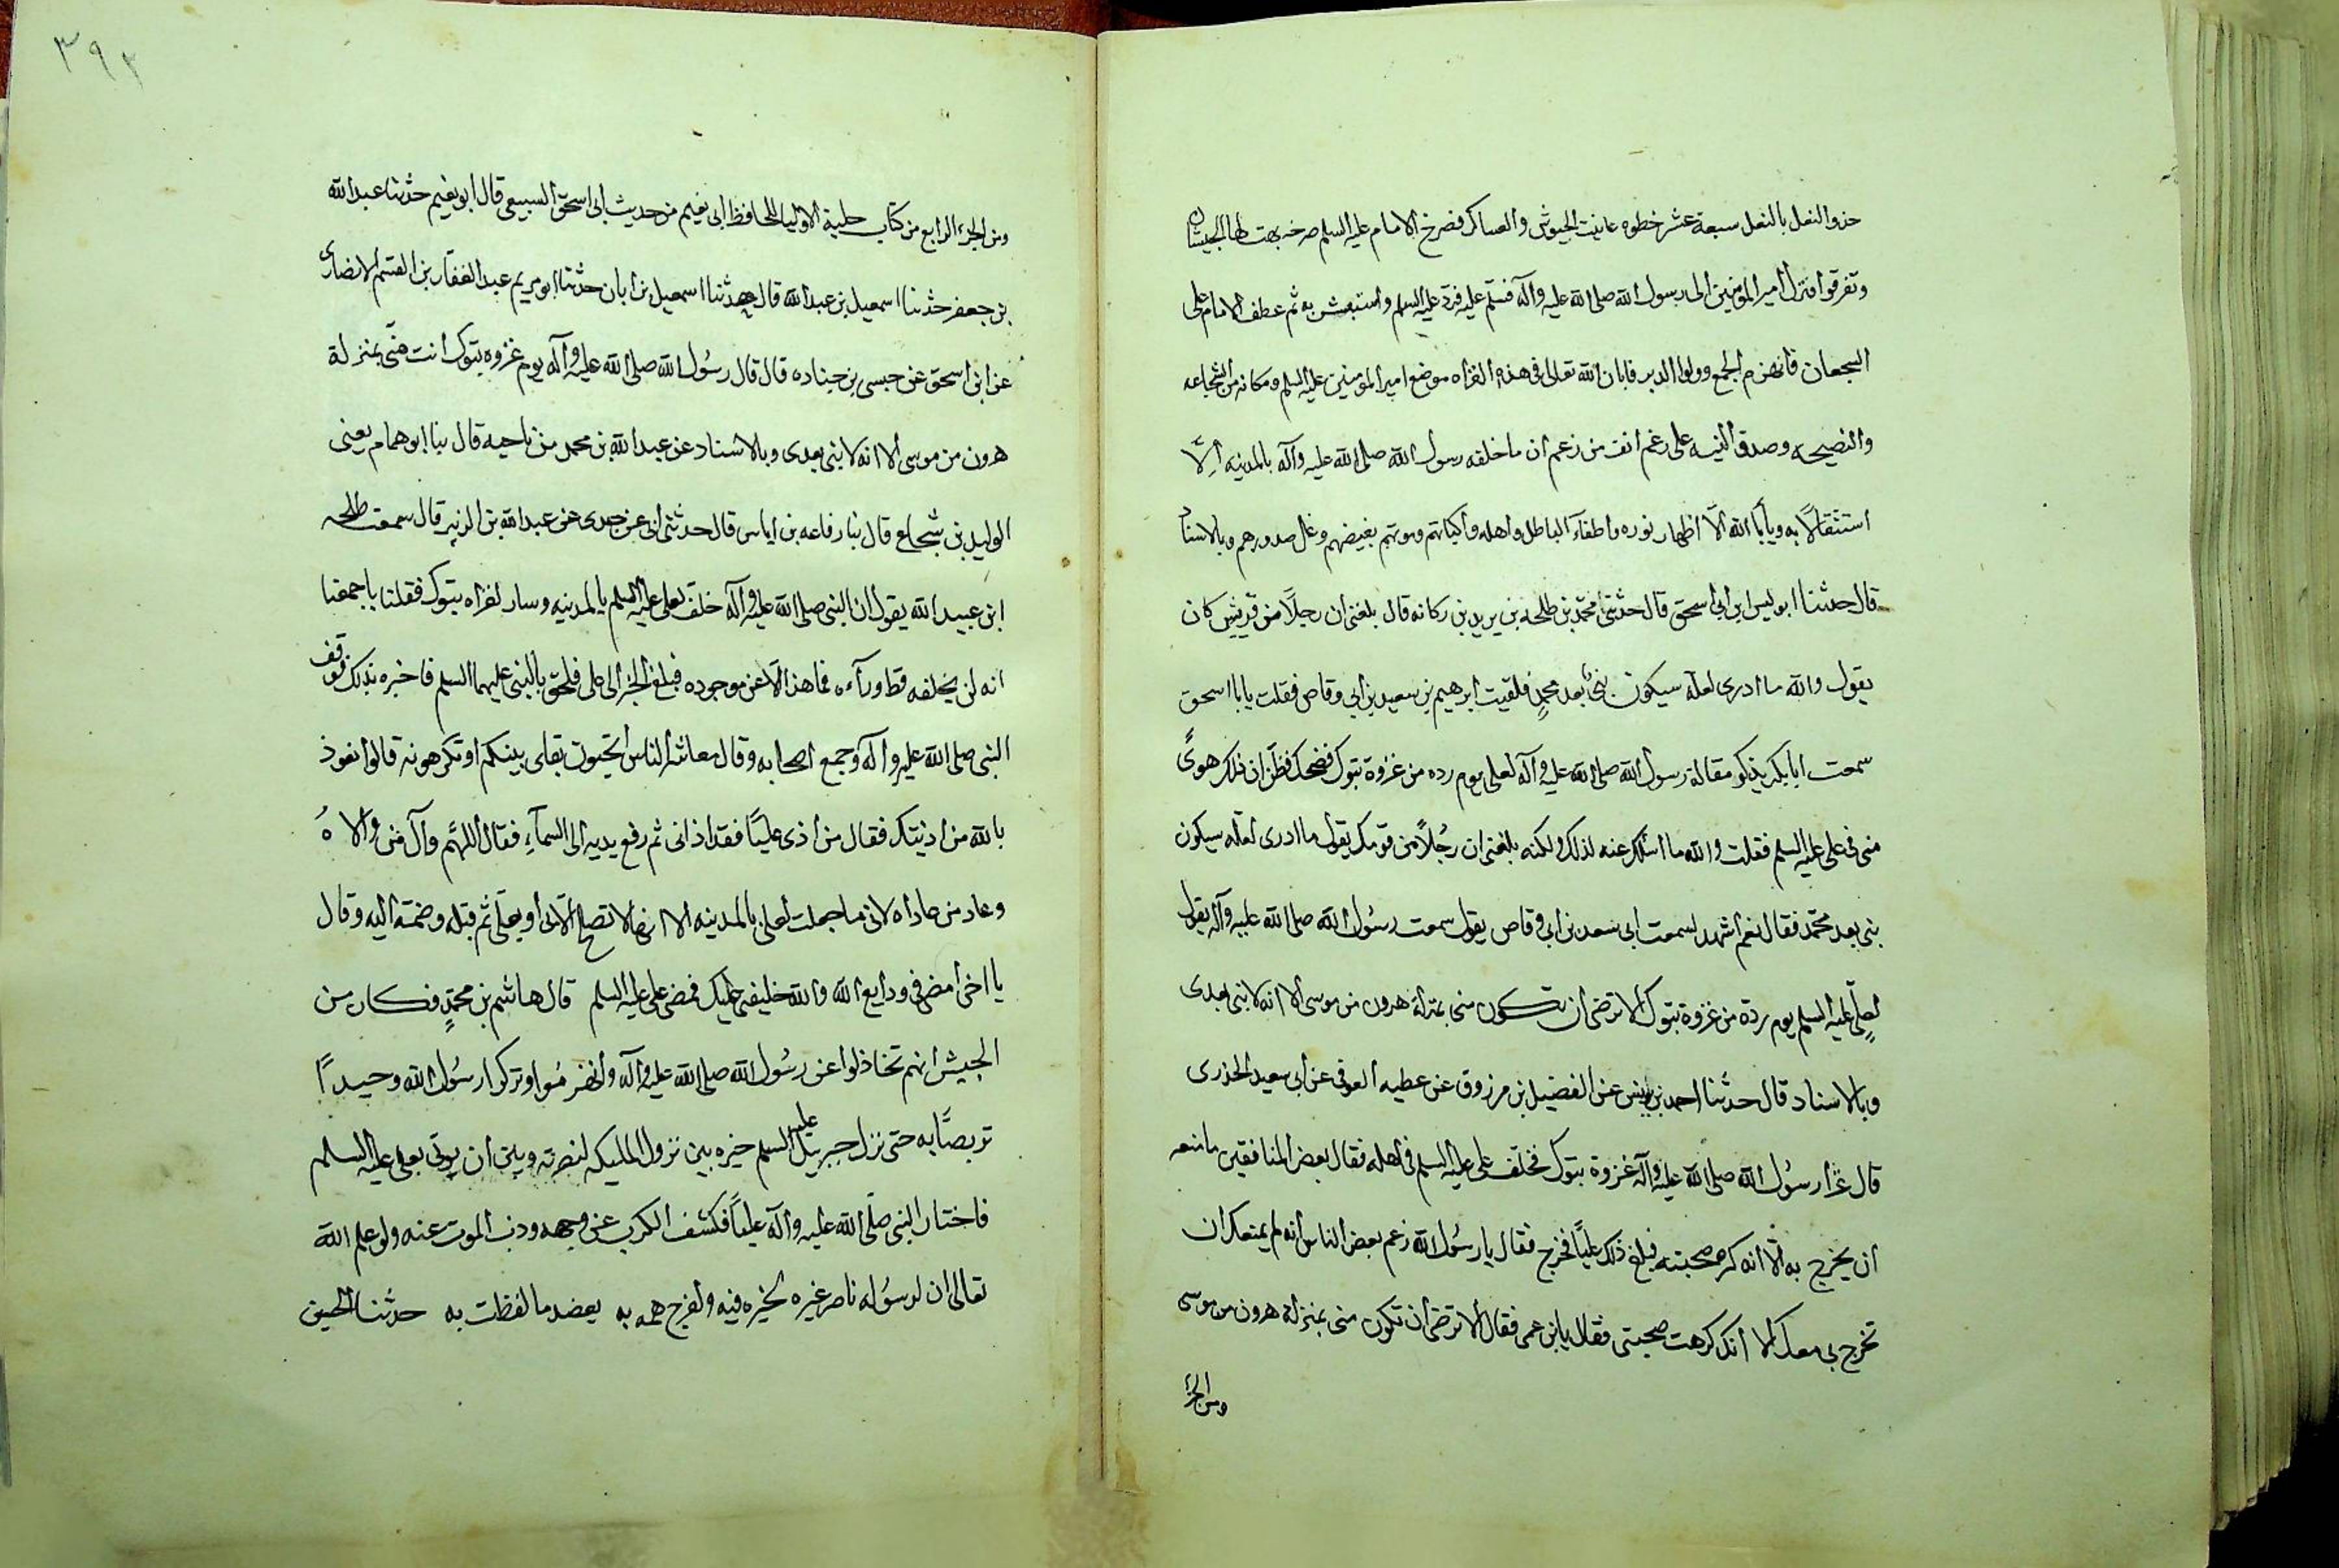 حذو النعل بالنعل سبعة عشر خطوه عاينت الجيوش والعساكر فصرخ الامام عليه السلم صرخه بهت لها الجيشان
وتفرقوا فنزل أمير المؤمنين الى رسول الله صلى الله عليه وآله فسلم عليه فرد عليه السلم واستبشر به ثم عطف الامام على
الشجعان فانهزم الجمع وولوا الدبر فابان الله تعالى في هذه الغزاه موضع امير المومنين عليه السلم ومكانه من الشجاعه
والنصيحه وصدق النيه على رغم انف من زعم ان ما خلفه رسول الله صلى الله عليه وآله بالمدينه الّا
استثقالًا به ويأبا الله الّا اظهار نوره واطفآء الباطل واهله وموتهم بغيضهم وغل صدورهم وبالاسناد
قال حدثنا ابو ليس ابن ابي اسحق قال حدثنى محمّد بن طلحه بن يريد بن ركانه قال بلغنى ان رجلًا من قريش كان
يقول والله ما ادرى لعله سيكون نبىٌ بعد محمدٍ فلقيت ابرهيم بن سعيد بن ابي وقاص فقلت يابا اسحق
سمعت ابا بكر يذكر مقالة رسول الله صلى الله عليه وآله لعلى يوم رده من غزوة تبوك فضحك فظن ان ذلك هوىً
منى فى على عليه السلم فقلت والله ما اسلك عنه لذلك ولكنه بلغنى ان رجُلًا من قومك يقول ما ادرى لعله سيكون
نبى بعد محمّد فقال نعم اشهد لسمعت ابى سعد بن ابى وقاص يقول سمعت رسُول الله صلى الله عليه وآله يقول
لعلّى عليه السلم يوم ردّه من غزوة تبوك الا ترضى ان تكون منى بمنزلة هرون من موسى الا انه لا نبى بعدى
وبالاسناد قال حدثنا احمد بن يونس عن الفضيل بن مرزوق عن عطيه العوفى عن ابى سعيد الخدرى
قال غزا رسُول الله صلى الله عليه وآله غزوة تبوك فخلف على عليه السلم فى اهله فقال بعض المنافقين ما منعه
ان يخرج به الّا انه كره صحبته فبلغ ذلك عليًا فخرج فقال يا رسُول الله زعم بعض الناس انه لم يمنعك ان
تخرج بى معك الا انك كرهت صحبتى فقال يا ابن عمى فقال الا ترضى ان تكون منى بمنزلة هرون من موسى
ومن الجزء
٣٩٢
ومن الجزء الرابع من كتاب حلية الاوليا للحافظ ابى نعيم من حديث ابى اسحق السبيعى قال ابو نعيم حدثنا عبد الله
بن جعفر حدثنا اسمعيل بن عبد الله قال حدثنا اسمعيل بن ابان حدثنا ابو مريم عبد الغفار بن القسم الانصارى
عن ابى اسحق عن حبسى بن جناده قال قال رسُول الله صلى الله عليه وآله يوم غزوه تبوك انت منّى بمنزلة
هرون من موسى الا انه لا نبى بعدى وبالاسناد عن عبد الله بن محمد بن ناحيه قال ثنا ابو همام يعنى
الوليد بن شجاع قال ثنا رفاعه بن اياس قال حدثنى ابى عن جدى عن عبد الله بن الزبير قال سمعت طلحه
ابن عبيد الله يقول ان النبى صلى الله عليه وآله خلف لعلى عليه السلم بالمدينه وسار لغزاه تبوك فقلنا باجمعنا
انه لن يخلفه قط ورآءه فما هذا الّا عن موجوده فبلغ الخبر الى على فلحق بالنبى عليهما السلم فاخبره بذلك فوقف
النبى صلى الله عليه وآله وجمع اصحابه وقال معاشر الناس اتحبون بقاى بينكم او تكرهونه قالوا نعوذ
بالله من اذيتك فقال من اذى عليًا فقد اذانى ثم رفع يديه الى السمآءِ فقال اللهّم وآل من والاهُ
وعاد من عاداه لانى ما جعلت لعلى بالمدينه الا انها لا تصلح الّا بى او بعلى ثم قبله وضمّه اليه وقال
يا اخى امض فى ودايع الله والله خليفى عليك فمضى على عليه السلم قال هاشم بن محمدٍ فكان من
الجيش انهم تخاذلوا عن رسُول الله صلى الله عليه وآله وانهزمُوا وتركوا رسُول الله وحيدًا
تربصًا به حتى نزل جبريل عليه السلم خيره بين نزول المليكه لنصرته وبين ان يوتى بعلى عليه السلم
فاختار النبى صلّى الله عليه وآله عليًا فكشف الكرب عن وجهه وذب الموت عنه ولو علم الله
تعالى ان لرسُوله ناصر غيره لخيره فيه ولفرج همه به يعضد ما لفظت به حدثنا الحسين